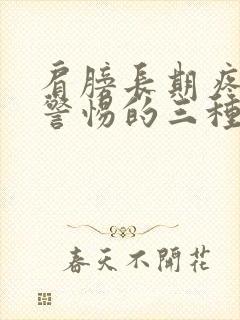 肩膀長期疼
警惕的三種
春天不開花